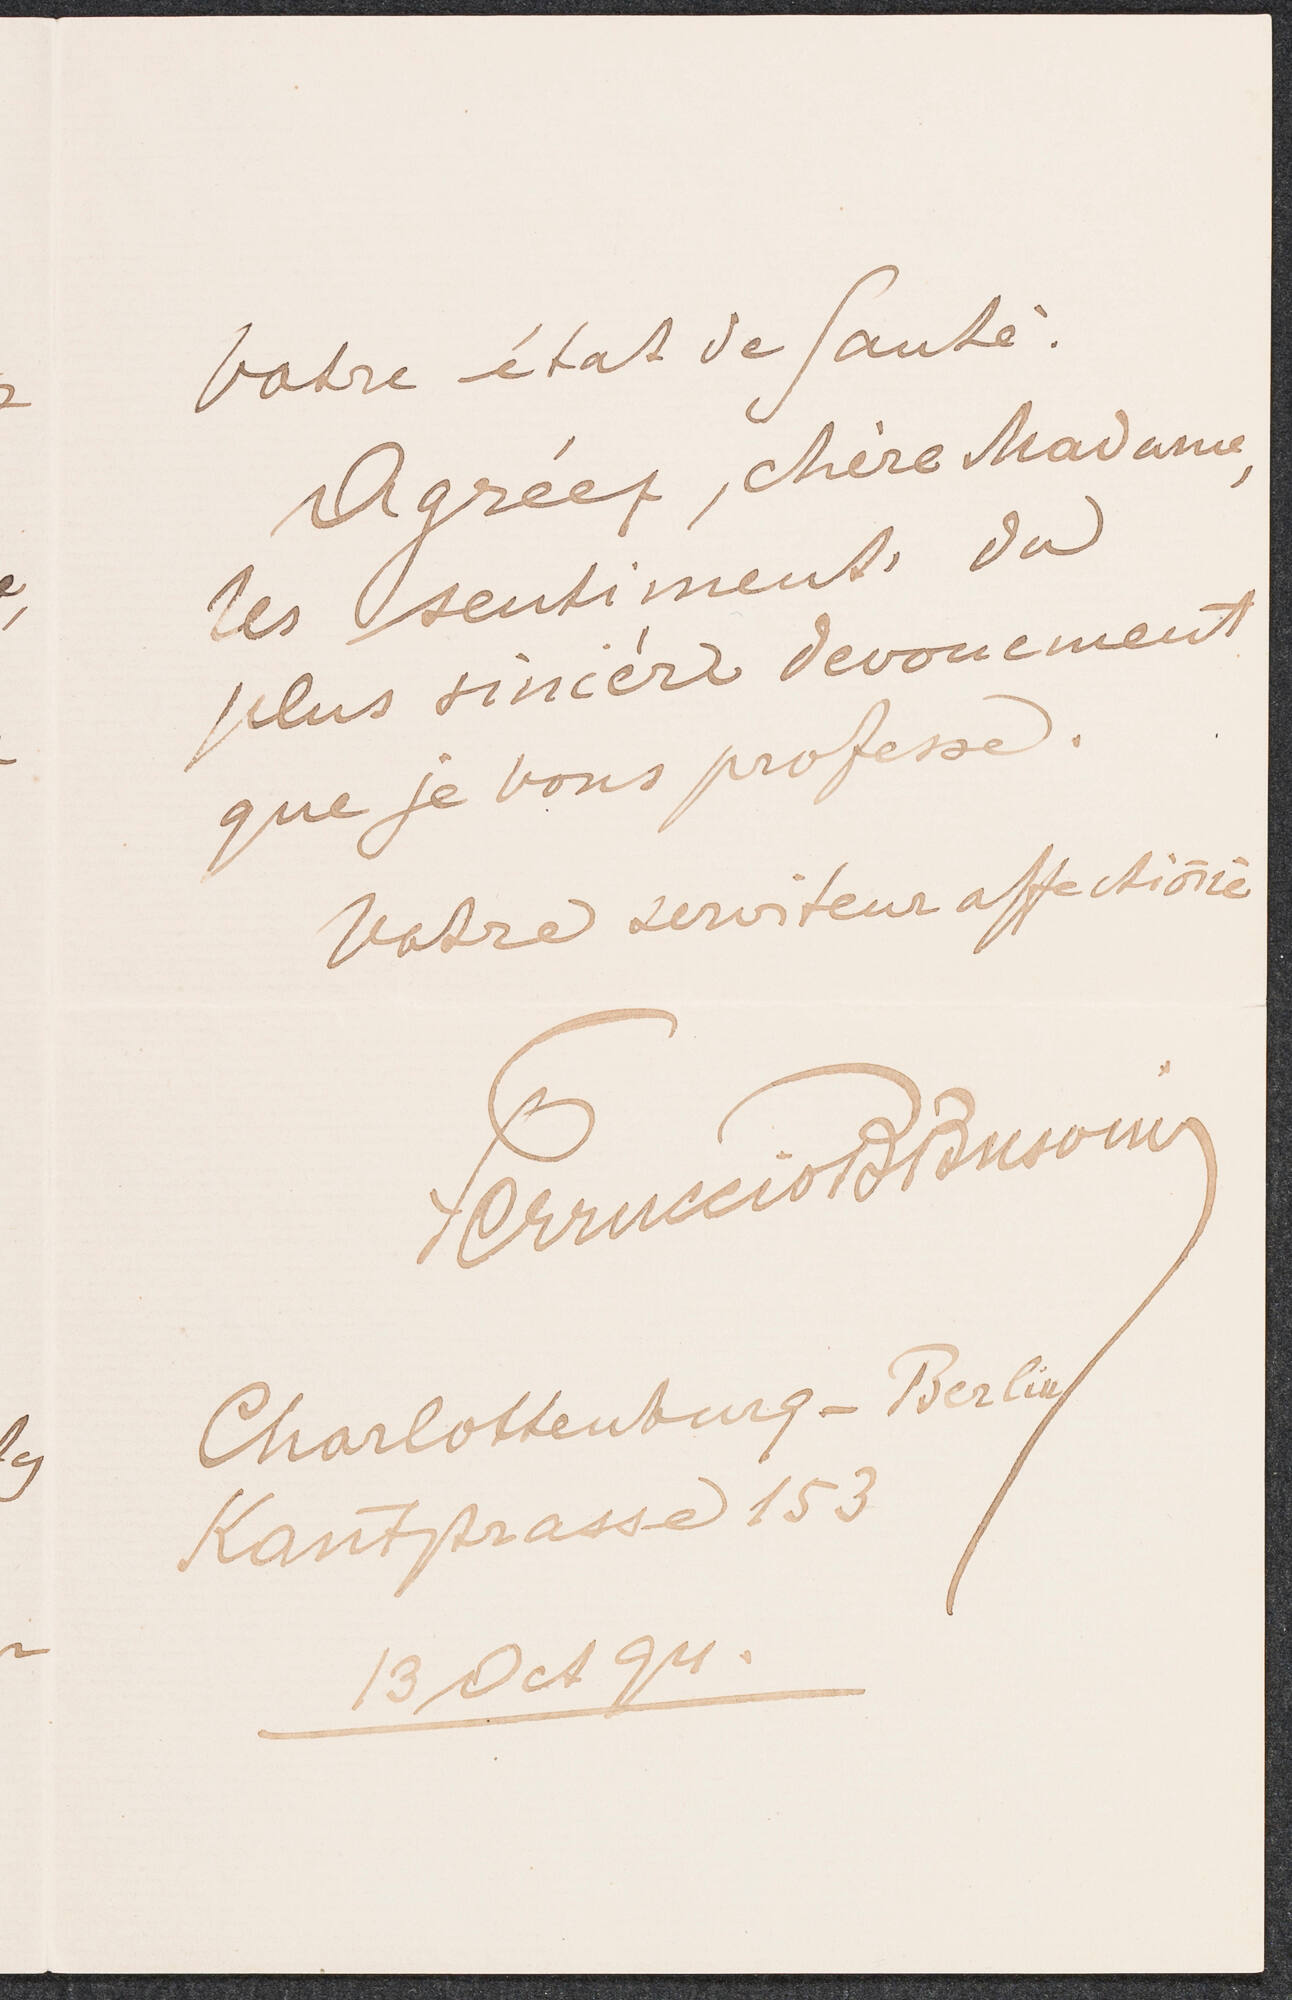 votre état de santè.
Agréez, chère Madame,
les sentiments du
plus sincére devouement
que je vous professe.
Votre serviteur affectiōnè
Ferruccio B Busoni
Charlottenburg - Berlin
Kantstrasse 153
13 Oct 94.